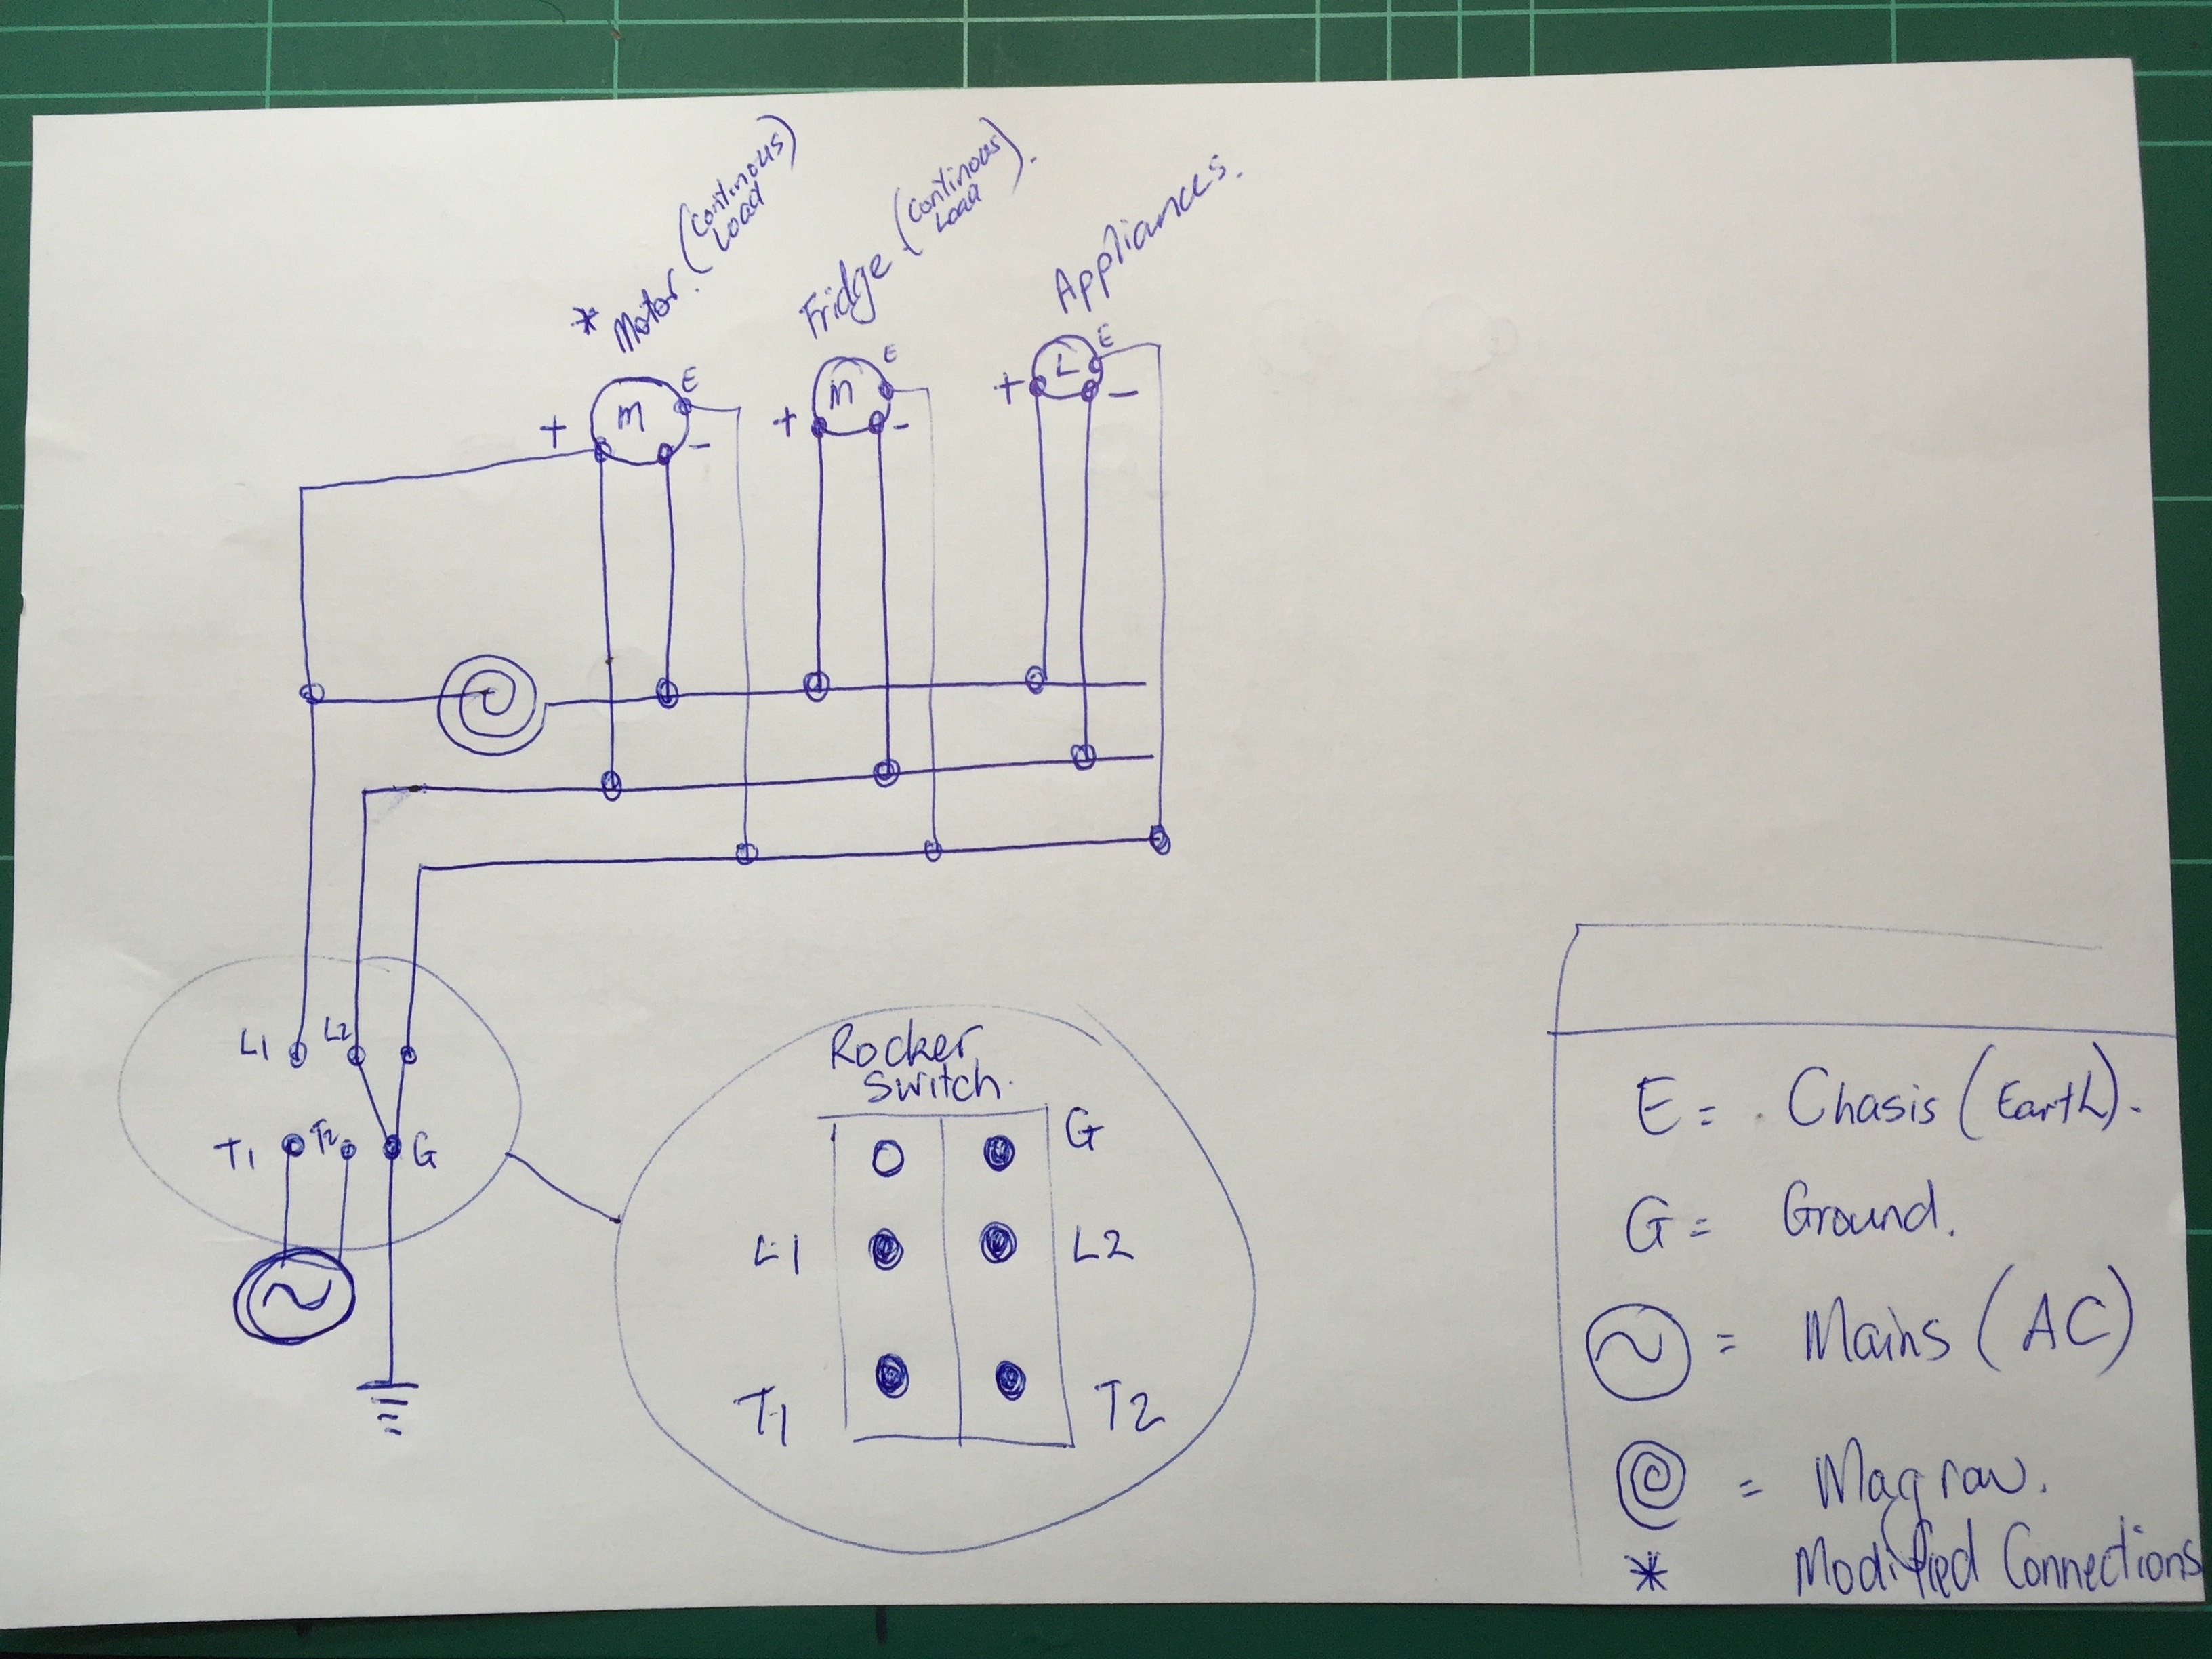 * Motor. (Continous) Load
Fridge (Continous) Load.
Appliances.
+ M E -
+ M E -
+ L E -
L1 L2
T1 T2 G
Rocker
Switch.
G
L1 L2
T1 T2
E = Chasis (Earth).
G = Ground.
= Mains (AC)
= Magrav.
* Modified Connections